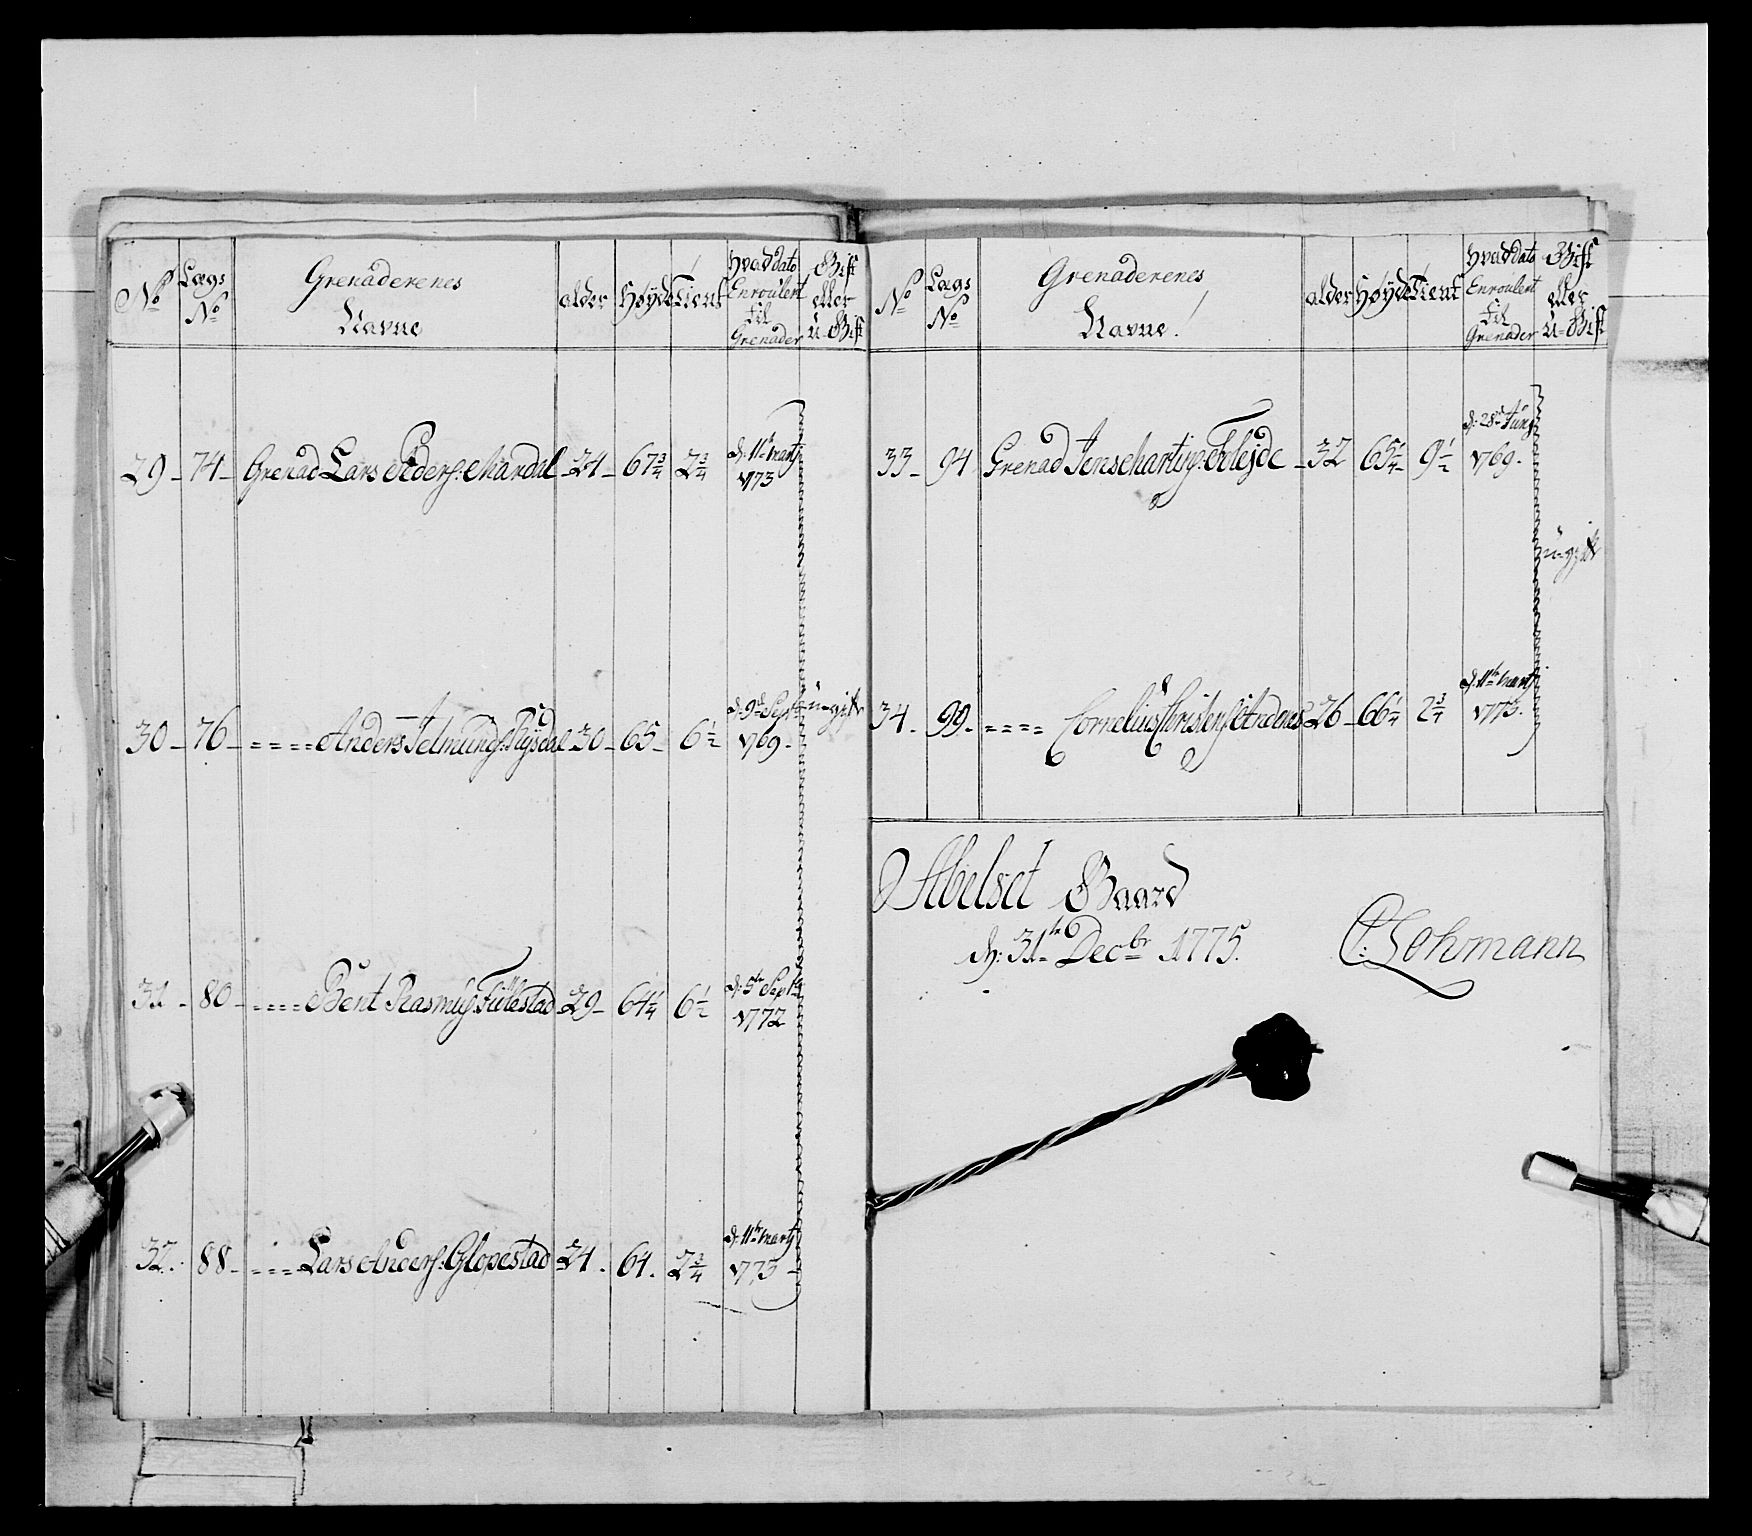 No
Lægs No
Grenaderenes Navne
alder
Høyde
Tient
Hvad dato Enroulert til Grenader
Gift eller u-Gift
29 - 74 - Grenad Lars Peders: Mardal - 24 - 67 3/4 2 3/4 d: 11te Marty 1773
30 - 76 - = = = = Anders Jelmunds: Rÿsdal - 30 - 65 - 6 1/2 d: 9de Septr 1769 - u-gift
31 - 80 - = = = = Bent Rasmus: - 29 - 64 1/4 6 1/2 d: 5te Septr 1772
32. 88 - = = = Lars Anders: Glopestad 24. 64. 2 3/4 d: 11te Marty 1773 -
No
Lægs No
Grenaderenes Navne!
alder
Høyde
Tient
Hvad dato Enroulert til Grenader
Gift eller u-Gift
33 - 94 Grenad Jens - 32 65 1/4 9 1/2 d: 28de Juny 1769 -
u-gift
34 - 99 - = = = = Cornelius Christens: - 26 - 66 1/4 2 3/4 d: 11te Marty 1773.
Abelset Gaard
d: 31te Decbr 1775.
C: Lohmann